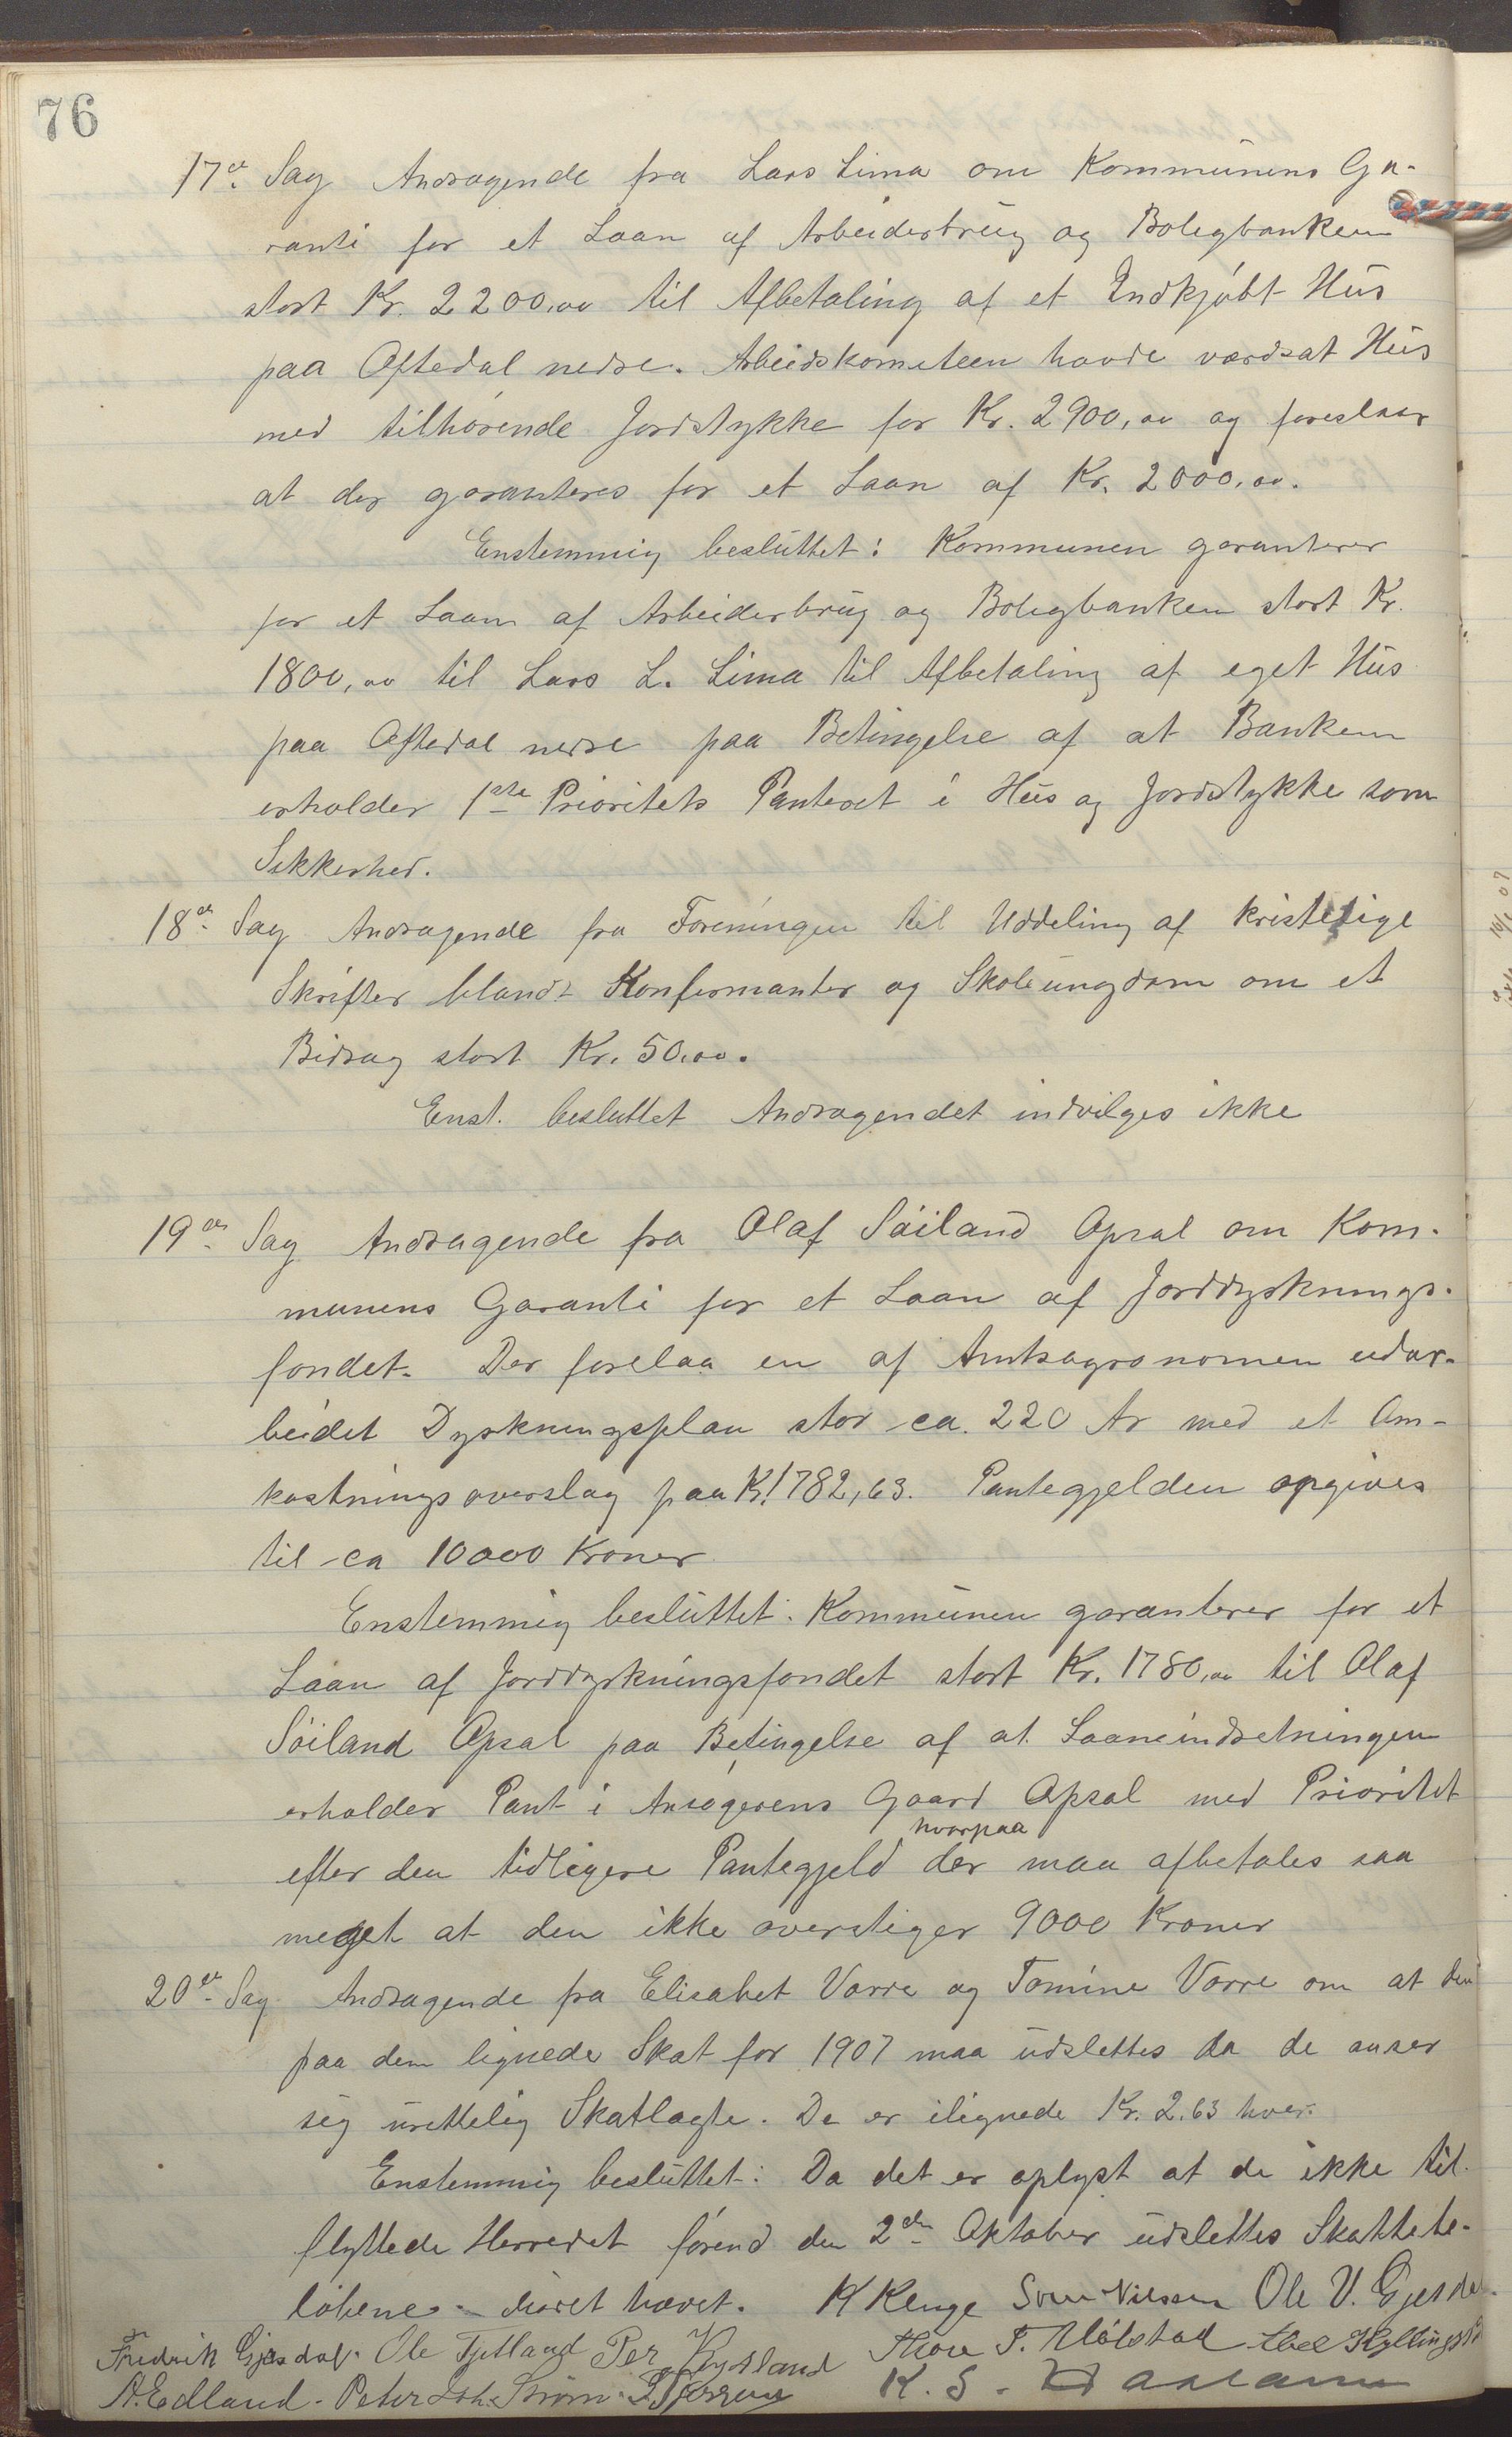 76
17de Sag Andragende fra Lars Lima om Kommunens Ga-
ranti for et Laan af Arbeiderbrug og Boligbanken
stort Kr. 2200,00 til Afbetaling af et Indkjøbt Hus
paa Oftedal nedre. Arbeidskometeen havde værdsat Hus
med tilhørende Jordstykke for Kr. 2900,00 og foreslaar
at der garanteres for et Laan af Kr. 2000,00.
Enstemmig besluttet: Kommunen garanterer
for et Laan af Arbeiderbrug og Boligbanken stort Kr.
1800,00 til Lars L. Lima til Afbetaling af eget Hus
paa Oftedal nedre paa Betingelse af at Banken
erholder 1ste Prioritets Panteret i Hus og Jordstykke som
Sikkerhed.
18de Sag Andragende fra Foreningen til Uddeling af kristelige
Skrifter blandt Konfirmanter og Skoleungdom om et
Bidrag stort Kr. 50,00.
Enst. besluttet Andragendet indvilges ikke
19de Sag Andragende fra Olaf Søiland Opsal om Kom-
munens Garanti for et Laan af Jorddyrknings-
fondet. Der forelaa en af Amtsagronomen udar-
beidet Dyrkningsplan stor ca. 220 Ar med et Om-
kostningsoverslag paa K. 1782,63. Pantegjelden opgives
til ca 10000 Kroner
Enstemmig besluttet: Kommunen garanterer for et
Laan af Jorddyrkningsfondet stort Kr. 1780,00 til Olaf
Søiland Opsal paa Betingelse af at Laaneindretningen
erholder Pant i Ansøgerens Gaard Opsal med Prioritet
hvorpaa
efter den tidligere Pantegjeld der maa afbetales saa
meget at den ikke overstiger 9000 Kroner
20de Sag Andragende fra Elisabet Varre og Tomine Varre om at den
paa dem lignede Skat for 1907 maa udslettes da de anser
sig urettelig Skatlagte. De er ilignede Kr. 2.63 hver.
Enstemmig besluttet: Da det er oplyst at de ikke til-
flyttede Herredet førend den 2den Oktober udslettes Skattebe-
løbene. - Møret hævet. K Kluge Sven Nilssen Ole V. Gjesdal.
Fredrik Gjesdal. Ole Fjetland Per Kydland Thore T. Mølstad Abel Kyllingstad
A. Edland. Peter Joh. Strøm. K. S. Haaland